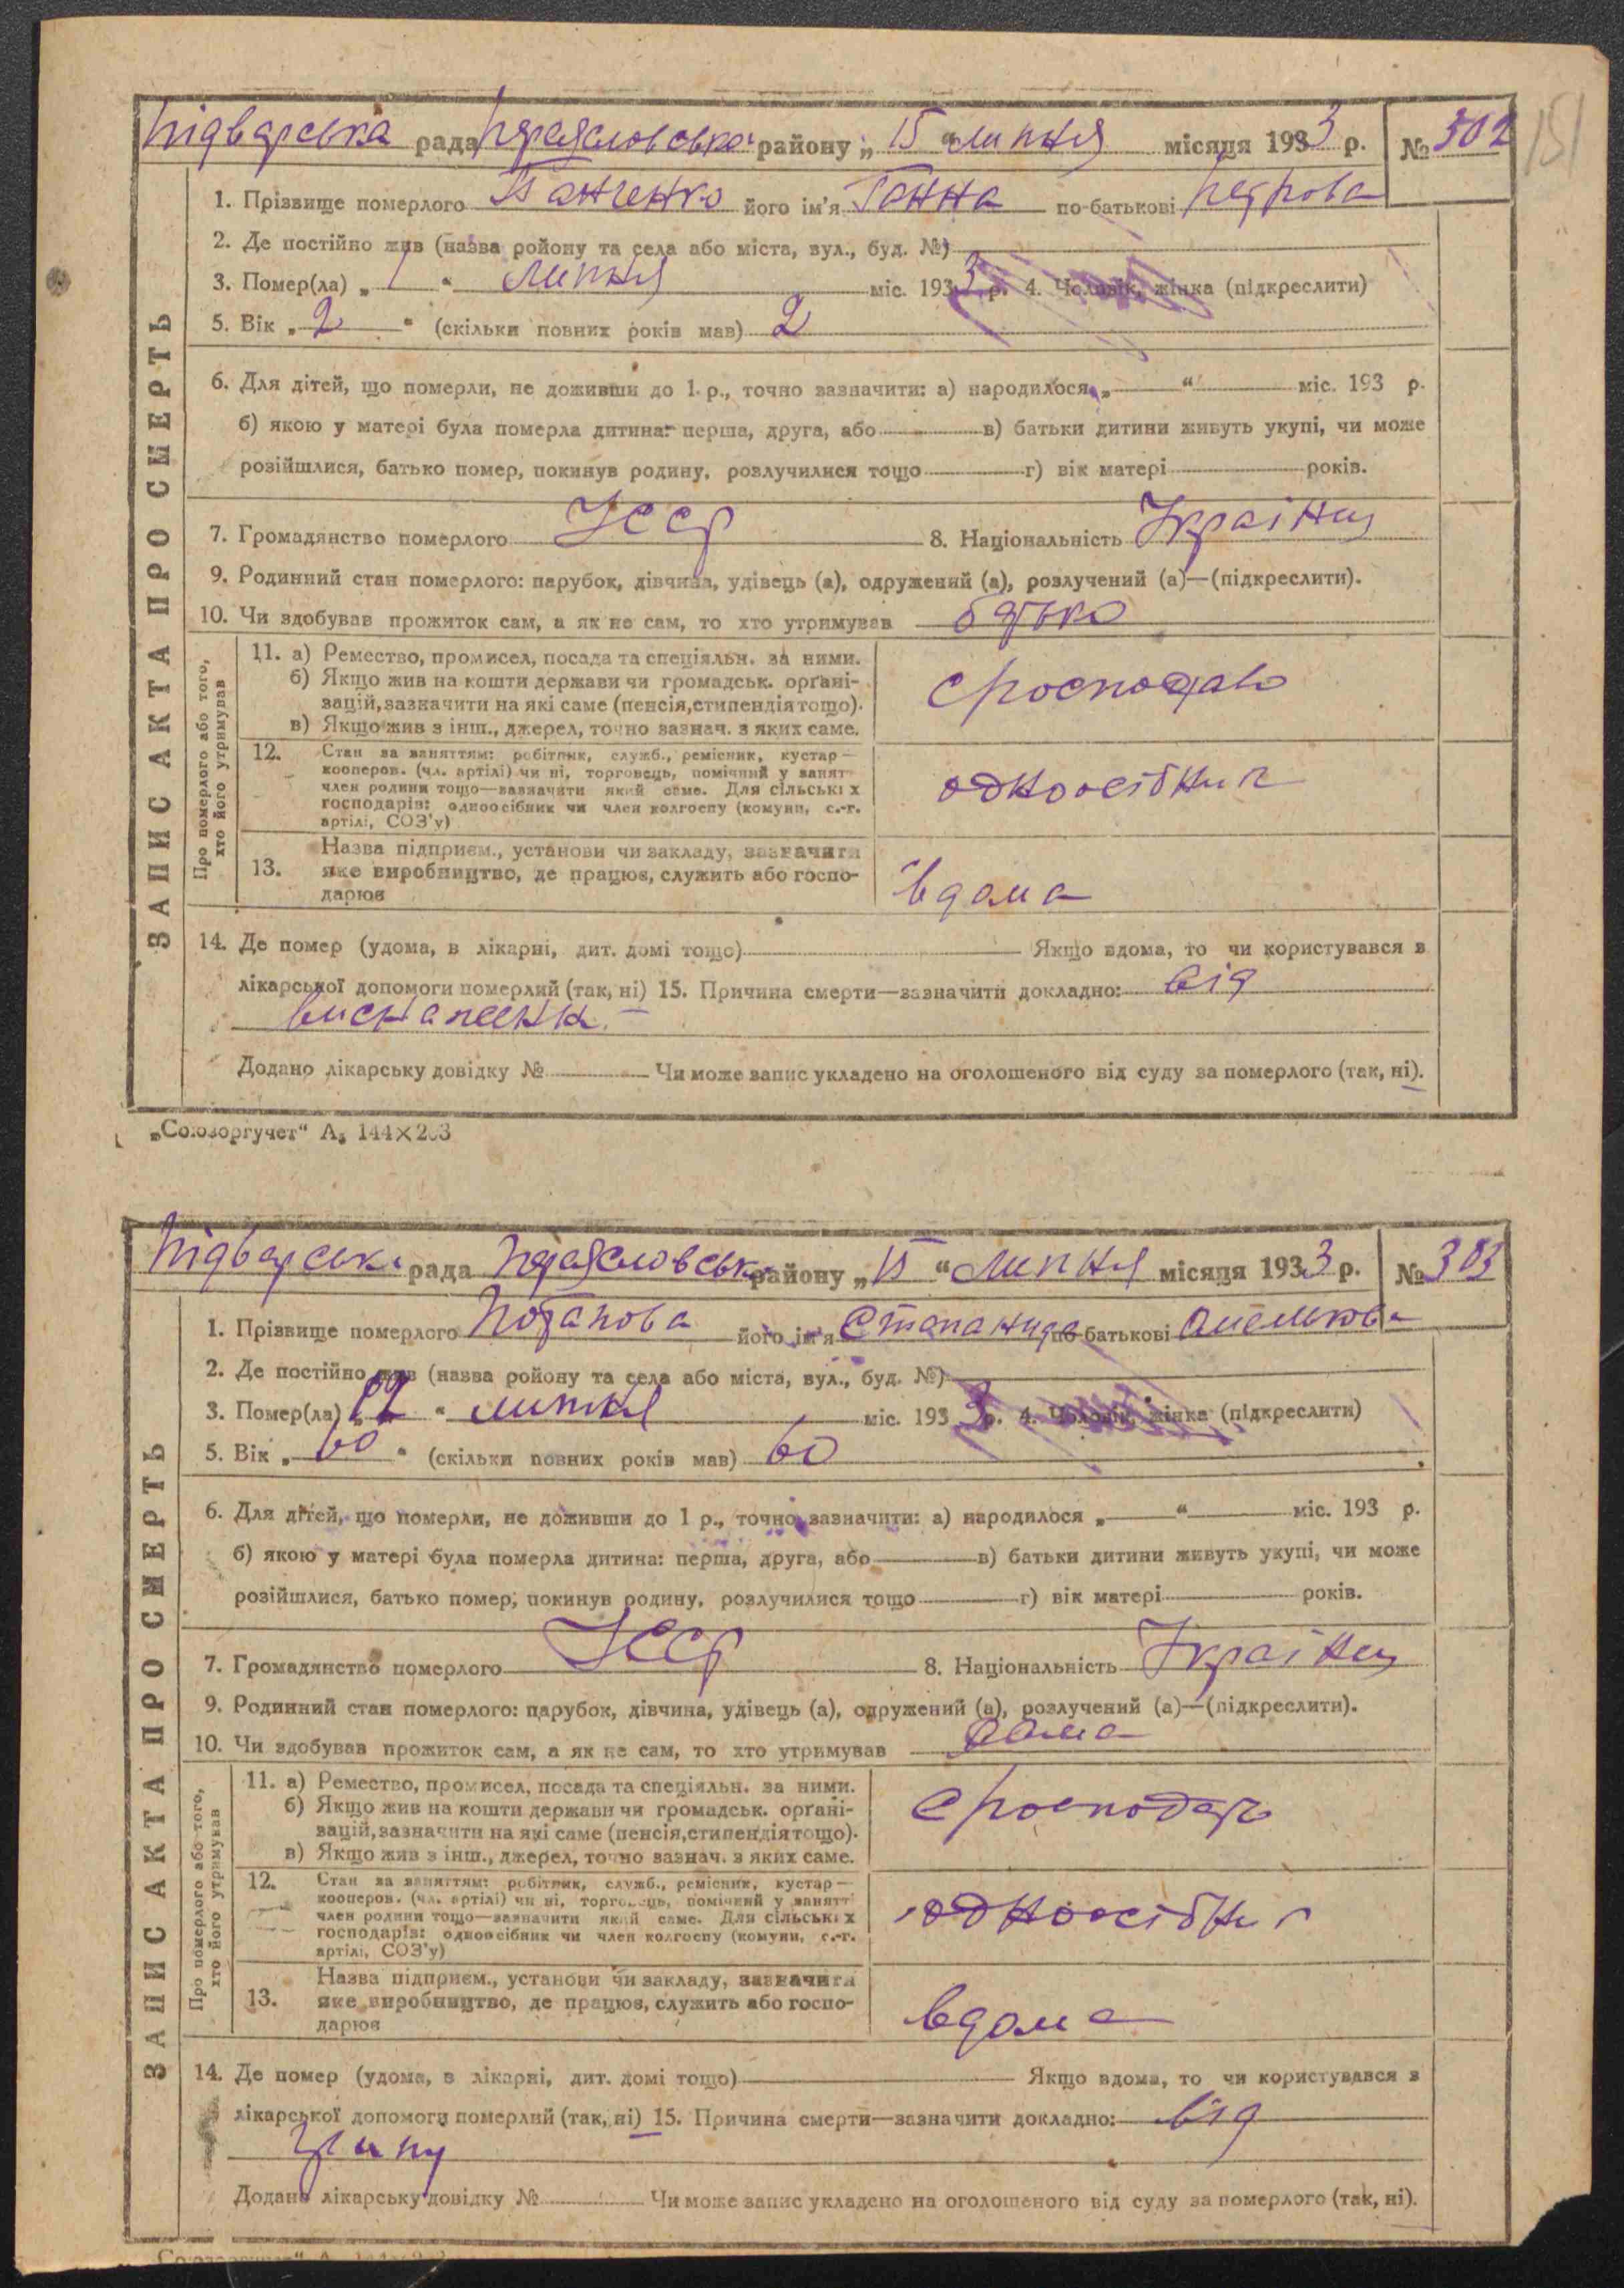 Підварська рада Переясловсько району „ 15 “ липня місяця 1933 р. № 302
151
1. Прізвище померлого Панченко його ім'я Ганна по-батькові Петрова
2. Де постійно жив (назва ройону та села або міста, вул., буд. №)
3. Помер(ла) „ 1 “ липня міс. 1933 р. 4. Чоловік, жінка (підкреслити)
5. Вік „ 2 “ (скільки повних років мав) 2
6. Для дітей, що померли, не доживши до 1 р., точно зазначити: а) народилося „ “ міс. 193 р.
б) якою у матері була померла дитина: перша, друга, або в) батьки дитини живуть укупі, чи може
розійшлися, батько помер, покинув родину, розлучилися тощо г) вік матері років.
7. Громадянство померлого УССР 8. Національність Українц
9. Родинний стан померлого: парубок, дівчина, удівець (а), одружений (а), розлучений (а)—(підкреслити).
10. Чи здобував прожиток сам, а як не сам, то хто утримував батько
ЗАПИС АКТА ПРО СМЕРТЬ
Про померлого або того, хто його утримував
11. а) Ремество, промисел, посада та спеціяльн. за ними.
б) Якщо жив на кошти держави чи громадськ. органі-
зацій, зазначити на які саме (пенсія, стипендія тощо).
в) Якщо жив з інш., джерел, точно зазнач. з яких саме.
12. Стан за заняттям: робітник, служб., ремісник, кустар—
кооперов. (чл. артілі) чи ні, торговець, помічний у занят
член родини тощо—зазначити який саме. Для сільських
господарів: одноосібник чи член колгоспу (комуни, с.-г.
артілі, СОЗ'у)
одноосібник
13. Назва підприєм., установи чи закладу, зазначити
яке виробництво, де працює, служить або госпо-
дарює
вдома
14. Де помер (удома, в лікарні, дит. домі тощо) Якщо вдома, то чи користувався в
лікарської допомоги померлий (так, ні) 15. Причина смерти—зазначити докладно: від
виснаження
Додано лікарську довідку № Чи може запис укладено на оголошеного від суду за померлого (так, ні).
„Союзоргучет“ А₅ 144×203
Підварськ рада Переясловськ району „ 15 “ липня місяця 1933 р. № 303
1. Прізвище померлого Потапова його ім'я Степанида по батькові Омелькова
2. Де постійно жив (назва ройону та села або міста, вул., буд. №)
3. Помер(ла) „ 12 “ липня міс. 1933 р. 4. Чоловік, жінка (підкреслити)
5. Вік „ 60 “ (скільки повних років мав) 60
6. Для дітей, що померли, не доживши до 1 р., точно зазначити: а) народилося „ “ міс. 193 р.
б) якою у матері була померла дитина: перша, друга, або в) батьки дитини живуть укупі, чи може
розійшлися, батько помер, покинув родину, розлучилися тощо г) вік матері років.
7. Громадянство померлого УССР 8. Національність Українц
9. Родинний стан померлого: парубок, дівчина, удівець (а), одружений (а), розлучений (а)—(підкреслити).
10. Чи здобував прожиток сам, а як не сам, то хто утримував сама
ЗАПИС АКТА ПРО СМЕРТЬ
Про померлого або того, хто його утримував
11. а) Ремество, промисел, посада та спеціяльн. за ними.
б) Якщо жив на кошти держави чи громадськ. органі-
зацій, зазначити на які саме (пенсія, стипендія тощо).
в) Якщо жив з інш., джерел, точно зазнач. з яких саме.
12. Стан за заняттям: робітник, служб., ремісник, кустар—
кооперов. (чл. артілі) чи ні, торговець, помічний у занятт
член родини тощо—зазначити який саме. Для сільських
господарів: одноосібник чи член колгоспу (комуни, с.-г.
артілі, СОЗ'у)
одноосібни
13. Назва підприєм., установи чи закладу, зазначити
яке виробництво, де працює, служить або госпо-
дарює
вдома
14. Де помер (удома, в лікарні, дит. домі тощо) Якщо вдома, то чи користувався в
лікарської допомоги померлий (так, ні) 15. Причина смерти—зазначити докладно: від
грипу
Додано лікарську довідку № Чи може запис укладено на оголошеного від суду за померлого (так, ні).